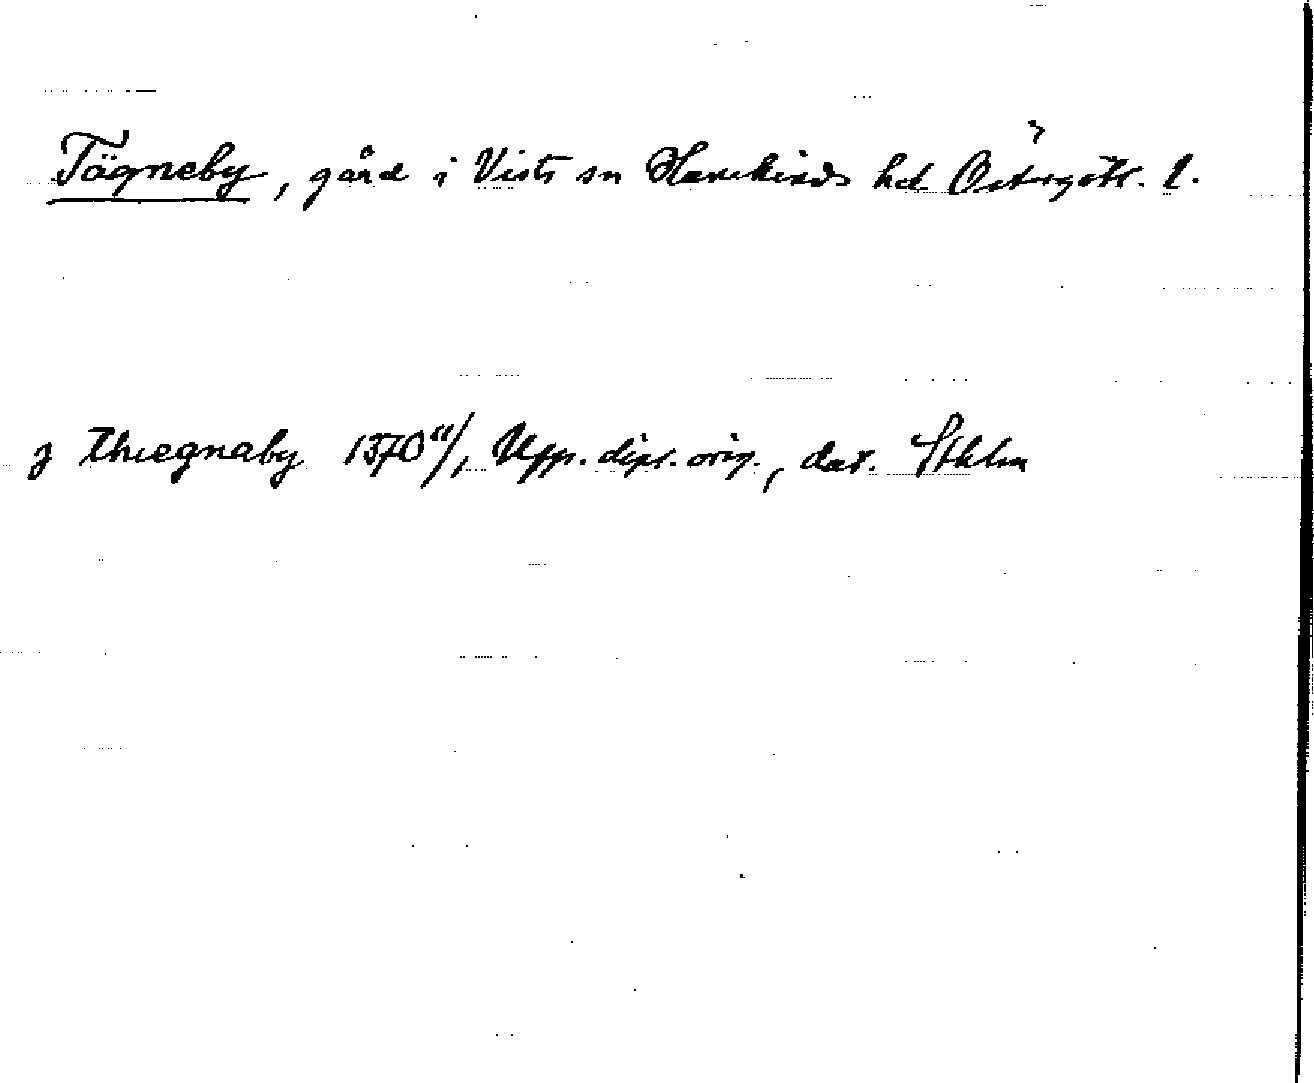 Tägneby, gård i Vists sn Hanekinds hd Östergötl. l.
j thiægnaby 1370 11/1 Upp. dipl. orig., dat. Sthlm